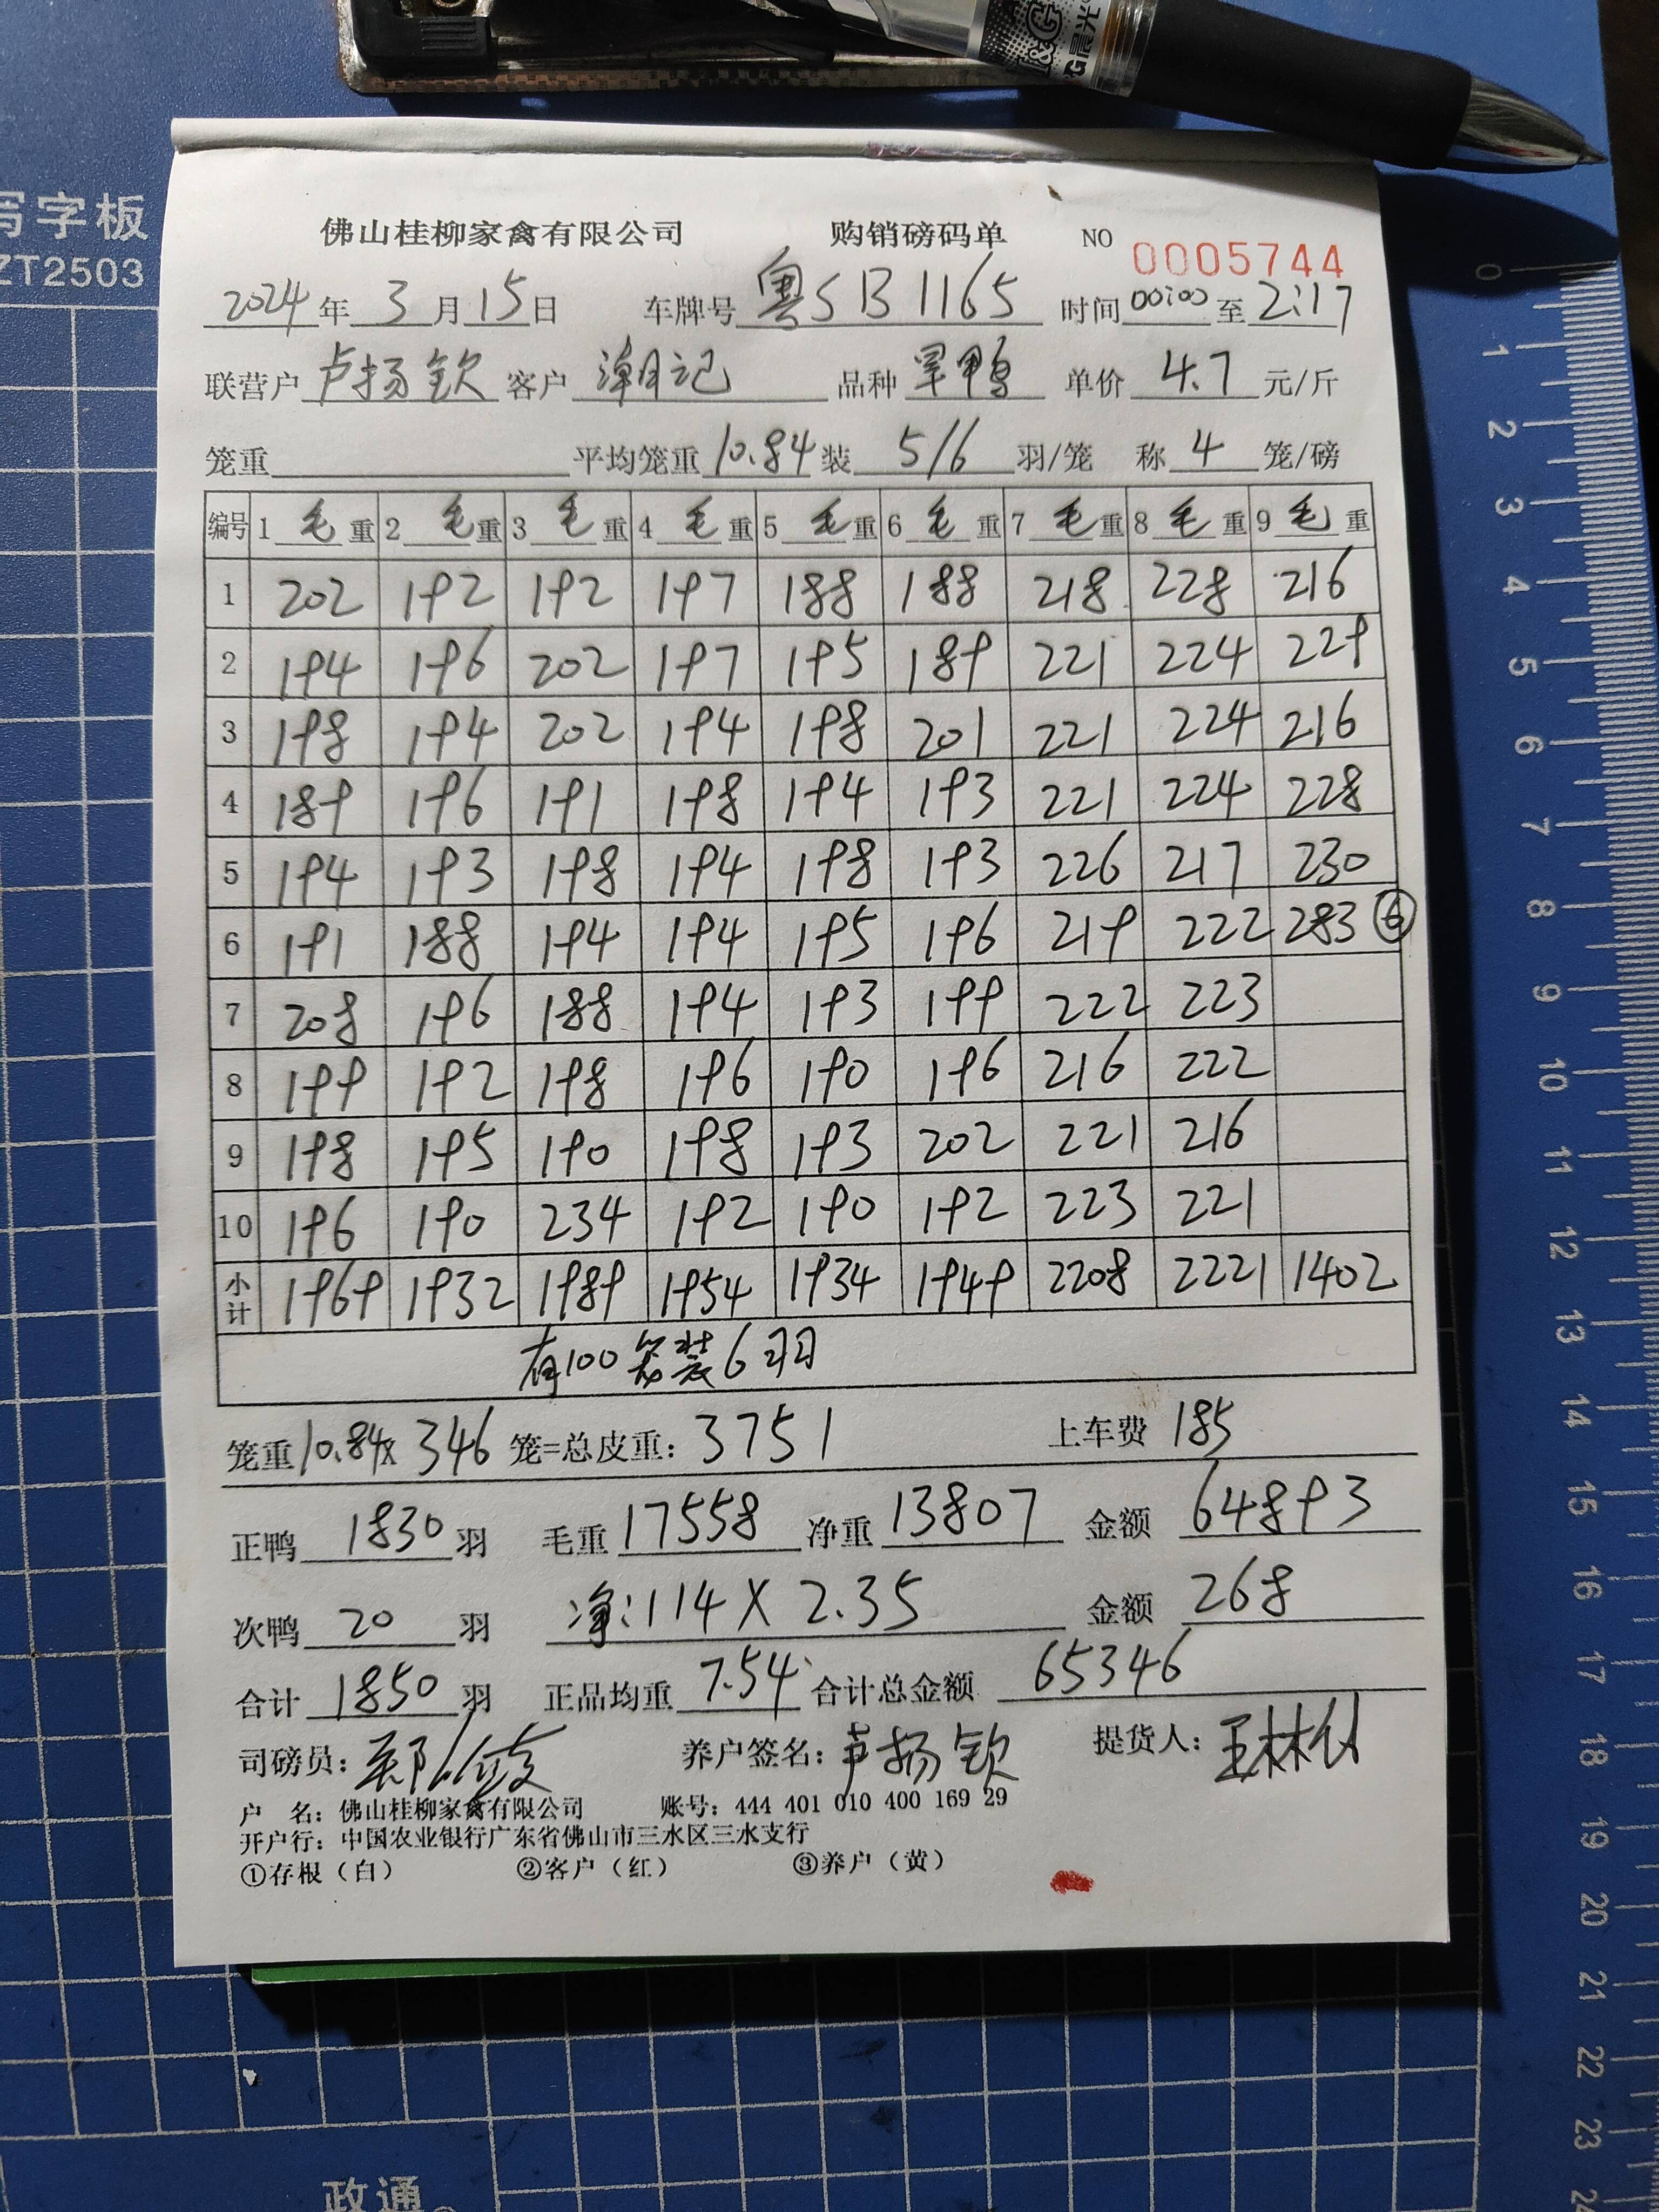 M&G晨光
写字板
ZT2503
佛山桂柳家禽有限公司 购销磅码单 NO 0005744
2024年 3月 15日 车牌号 粤SB1165 时间 00:00 至 2:17
联营户 卢扬钦 客户 潮记 品种 旱鸭 单价 4.7 元/斤
笼重 平均笼重 10.84 装 5/6 羽/笼 称 4 笼/磅
编号 1 毛重 2 毛重 3 毛重 4 毛重 5 毛重 6 毛重 7 毛重 8 毛重 9 毛重
1 202 192 192 197 188 188 218 228 216
2 194 196 202 197 195 189 221 224 229
3 198 194 202 194 198 201 221 224 216
4 189 196 191 198 194 193 221 224 228
5 194 193 198 194 198 193 226 217 230
6 191 188 194 194 195 196 219 222 283 ⑥
7 208 196 188 194 193 199 222 223
8 199 192 198 196 190 196 216 222
9 198 195 190 198 193 202 221 216
10 196 190 234 192 190 192 223 221
小计 1969 1932 1989 1954 1934 1949 2208 2221 1402
有100笼装6羽
笼重 10.84 x 346 笼=总皮重: 3751 上车费 185
正鸭 1830 羽 毛重 17558 净重 13807 金额 64893
次鸭 20 羽 净:114 X 2.35 金额 268
合计 1850 羽 正品均重 7.54 合计总金额 65346
司磅员: 养户签名: 卢扬钦 提货人:
户 名: 佛山桂柳家禽有限公司 账号: 444 401 010 400 169 29
开户行: 中国农业银行广东省佛山市三水区三水支行
①存根（白） ②客户（红） ③养户（黄）
0 1 2 3 4 5 6 7 8 9 10 11 12 13 14 15 16 17 18 19 20 21 22 23
政通